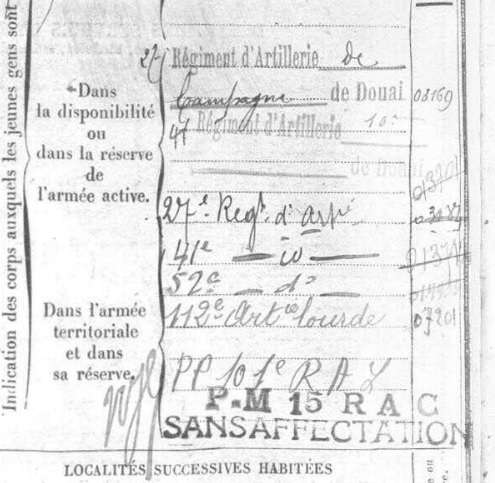 Indication des corps auxquels les jeunes gens sont
Dans
la disponibilité
ou
dans la réserve
de
l'armée active.
27 Régiment d'Artillerie de
Campagne de Douai 08169
41 Régiment d'Artillerie
de Douai
27e Regt d'Art
41e — id —
52e — do —
Dans l'armée
territoriale
et dans
sa réserve.
112e Artie lourde 07201
PP 101e R A L
P.M 15 R A C
SANS AFFECTATION
LOCALITÉS SUCCESSIVES HABITÉES